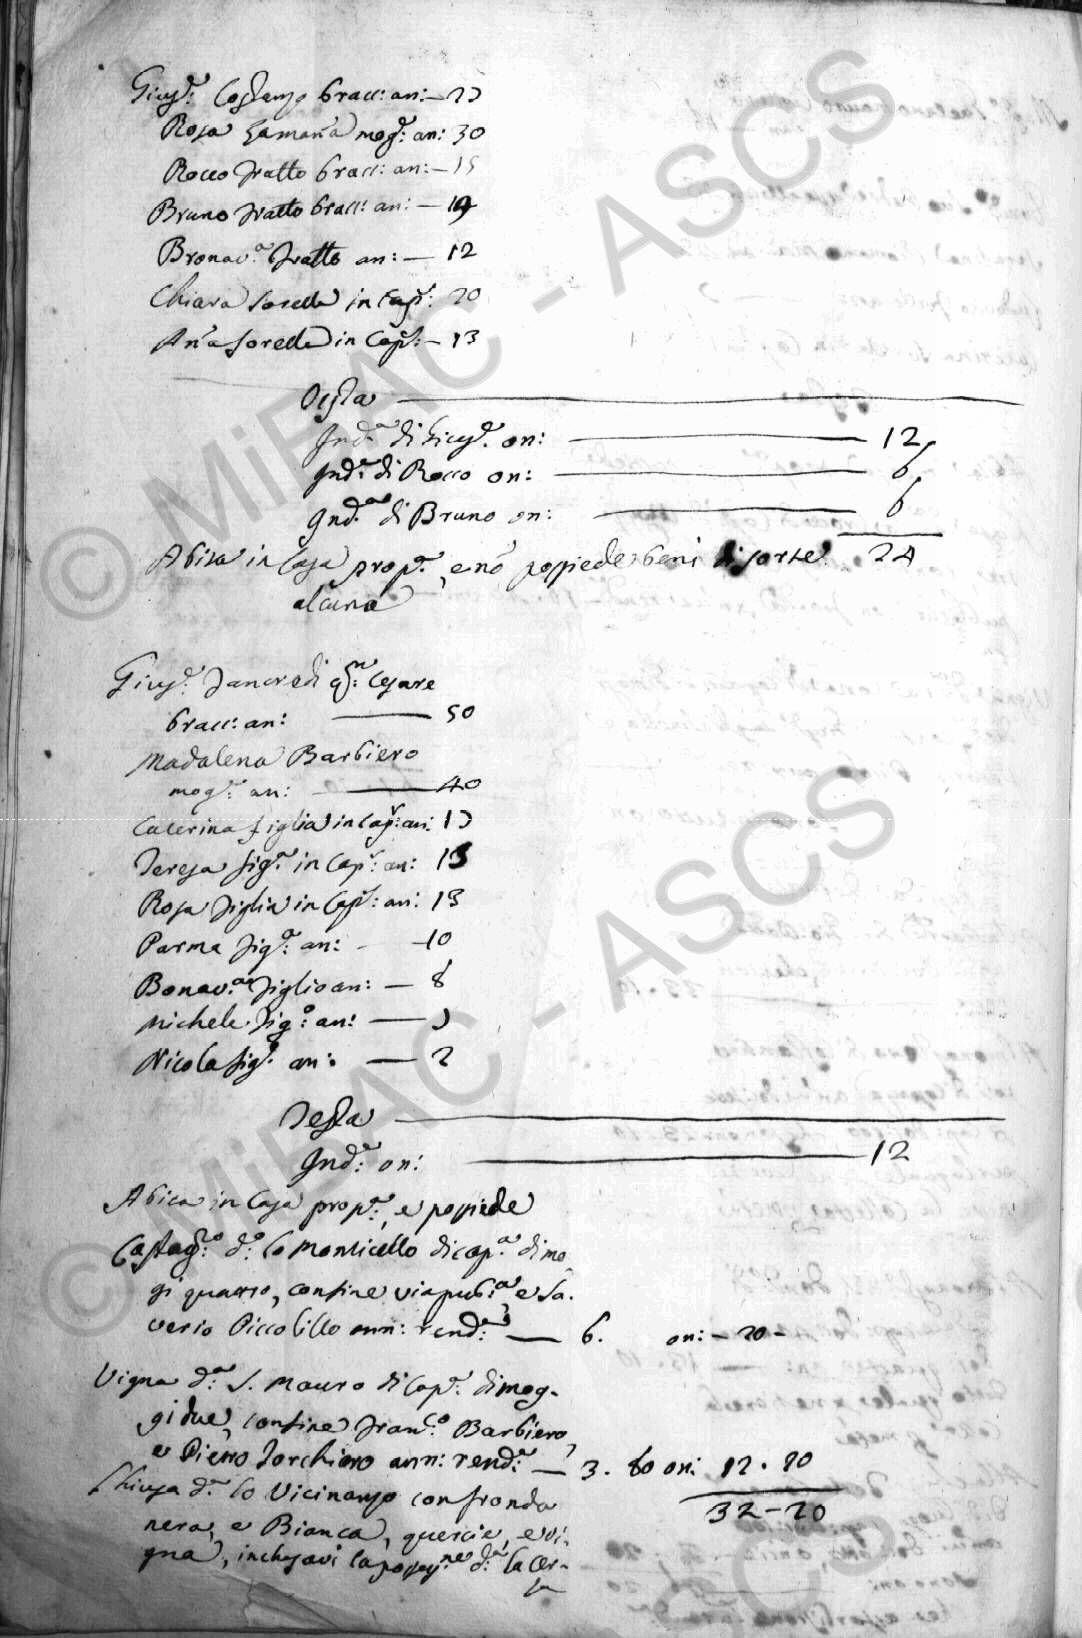 Gius.e Costanzo bracc: an: — 25
Rosa Zamarra mog: an: 30
Rocco fratto bracc: an: — 15
Bruno fratto bracc: an: — 19
Bronav.a fratto an: — 12
Chiara sorella in Cap.l: 20
An'a sorella in Cap.l: — 13
Testa
Ind.a di Gius.e on: 12
Ind.a di Rocco on: 6
Ind.a di Bruno on: 6
Abita in Casa prop.a, e nõ possiede beni di sorte 24
alcuna
Gius.e Tancredi q.m Cesare
bracc: an: 50
Madalena Barbiero
mog: an: 40
Caterina figlia in Cap.l: an: 15
Teresa fig.a in Cap.l: an: 15
Rosa figlia in Cap.l: an: 13
Parma fig.a: an: - 10
Bonav.a figlio an: — 8
Michele fig.o: an: — 5
Nicola fig.o an: — 2
Testa
Ind.a: on: 12
Abita in Casa prop.a, e possiede
Castag.o d.o lo Monticello di cap.a di mo
gi quattro, confine via pub.a, e Sa.
verio Piccolillo ann: rend.a — 6. on: - 20 -
Vigna d.a S. Mauro di Cap.a di mog-
gi due, confine Fran.co Barbiero,
e Pietro Torchiaro ann: rend.a — 3 . 80 on: 12 . 20
32 - 20
Chiusa d.a lo Vicinanzo con fronda
nera, e Bianca, quercie, e vi-
gna, inclusavi la d.a la Cer-
sa